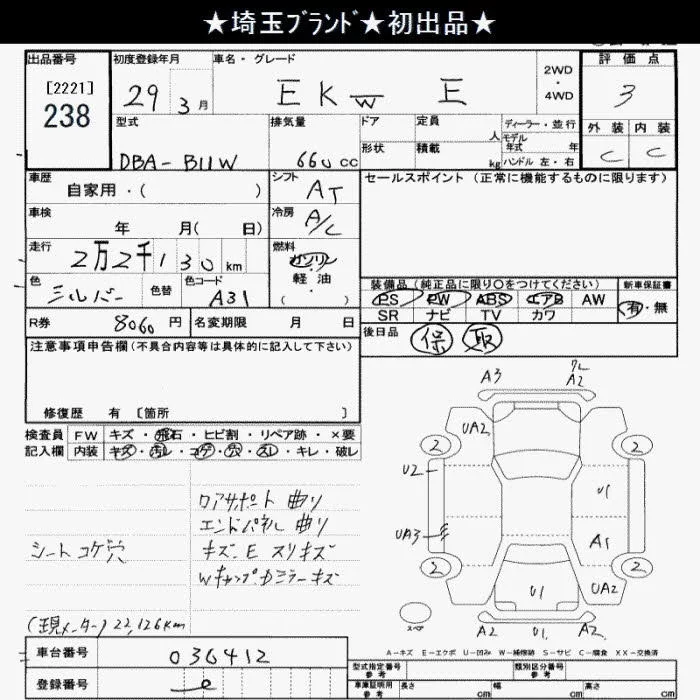 ★埼玉ﾌﾞﾗﾝﾄﾞ★初出品★
出品番号 初度登録年月 車名・グレード 評価点
[2221]
238
29 3月
EKw E
2WD・4WD
3
型式 排気量 ドア 定員 人 ディーラー・並行
モデル年式 年
外装 内装
DBA-B11W 660cc
形状 積載 kg ハンドル 左・右
C C
車歴 自家用・( )
シフト AT
セールスポイント (正常に機能するものに限ります)
車検 年 月( 日)
冷房 A/C
走行 2万2千130km
燃料 ガソリン
軽油
・( )
色 シルバー 色替 色コード A31
装備品(純正品に限り○をつけてください) 新車保証書
PS PW ABS エアB AW 有・無
SR ナビ TV カワ
R券 8060円 名変期限 月 日
後日品 保 取
注意事項申告欄(不具合内容等は具体的に記入して下さい)
修復歴 有 [箇所 ]
検査員 FW キズ・飛石・ヒビ割・リペア跡・×要
記入欄 内装 キズ・汚レ・コゲ・穴・スレ・キレ・破レ
ロアサポート 曲り
エンドパネル 曲り
シートコゲ穴
キズ、E スリキズ
Wキャップ、Dミラーキズ
(現メーター) 22,126km
A3 A2
UA2
2 2
U2
U1
UA3
A1
2 2
U1 UA2
スペア
A2 U1 A2
A-キズ E-エクボ U-凹み W-補修跡 S-サビ C-腐食 XX-交換済
車台番号 036412
登録番号
型式指定番号 参考 類別区分番号 参考
車庫証明用 参考 長さ cm 幅 cm 高さ cm